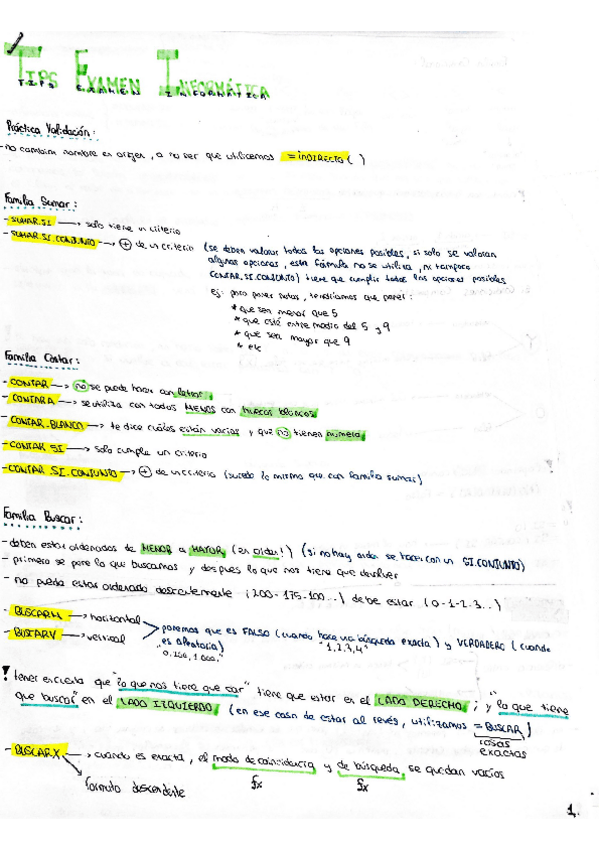 TIPS EXAMEN INFORMÁTICA
Práctica Validación:
- no cambiar nombre en origen, a no ser que utilicemos =INDIRECTO( )
Familia Sumar:
- SUMAR.SI → solo tiene un criterio
- SUMAR.SI.CONJUNTO → + de un criterio (se deben valorar todas las opciones posibles, si solo se valoran
algunas opciones, esta fórmula no se utiliza, ni tampoco
CONTAR.SI.CONJUNTO) tiene que cumplir todas las opciones posibles
ej: para poner notas, tendríamos que poner:
* que sea menor que 5
* que esté entre medio del 5 y 9
* que sea mayor que 9
* etc
Familia Contar:
- CONTAR → no se puede hacer con letras
- CONTARA → se utiliza con todos MENOS con huecos blancos
- CONTAR.BLANCO → te dice cuáles están vacías y que no tienen
- CONTAR SI → solo cumple un criterio
- CONTAR SI.CONJUNTO → + de un criterio (sucede lo mismo que con familia sumar)
Familia Buscar:
- deben estar ordenados de MENOR a MAYOR (en orden!) (si no hay orden se hace con un SI.CONJUNTO)
- primero se pone lo que buscamos y despues lo que nos tiene que devolver
- no puede estar ordenado descendemente (200-175-100...) debe estar (0-1-2-3...)
- BUSCARH → horizontal
- BUSCARV → vertical
ponemos que es FALSO (cuando hace una búsqueda exacta) y VERDADERO (cuando
"es aleatoria) "1,2,3,4"
! tener en cuenta que "lo que nos tiene que dar" tiene que estar en el LADO DERECHO; y "lo que tiene
que buscar" en el LADO IZQUIERDO (en ese caso de estar al revés, utilizamos =BUSCAR)
cosas
exactas
- BUSCARX → cuando es exacta, el modo de coincidencia y de búsqueda, se quedan vacíos
formato descendente fx fx
1.